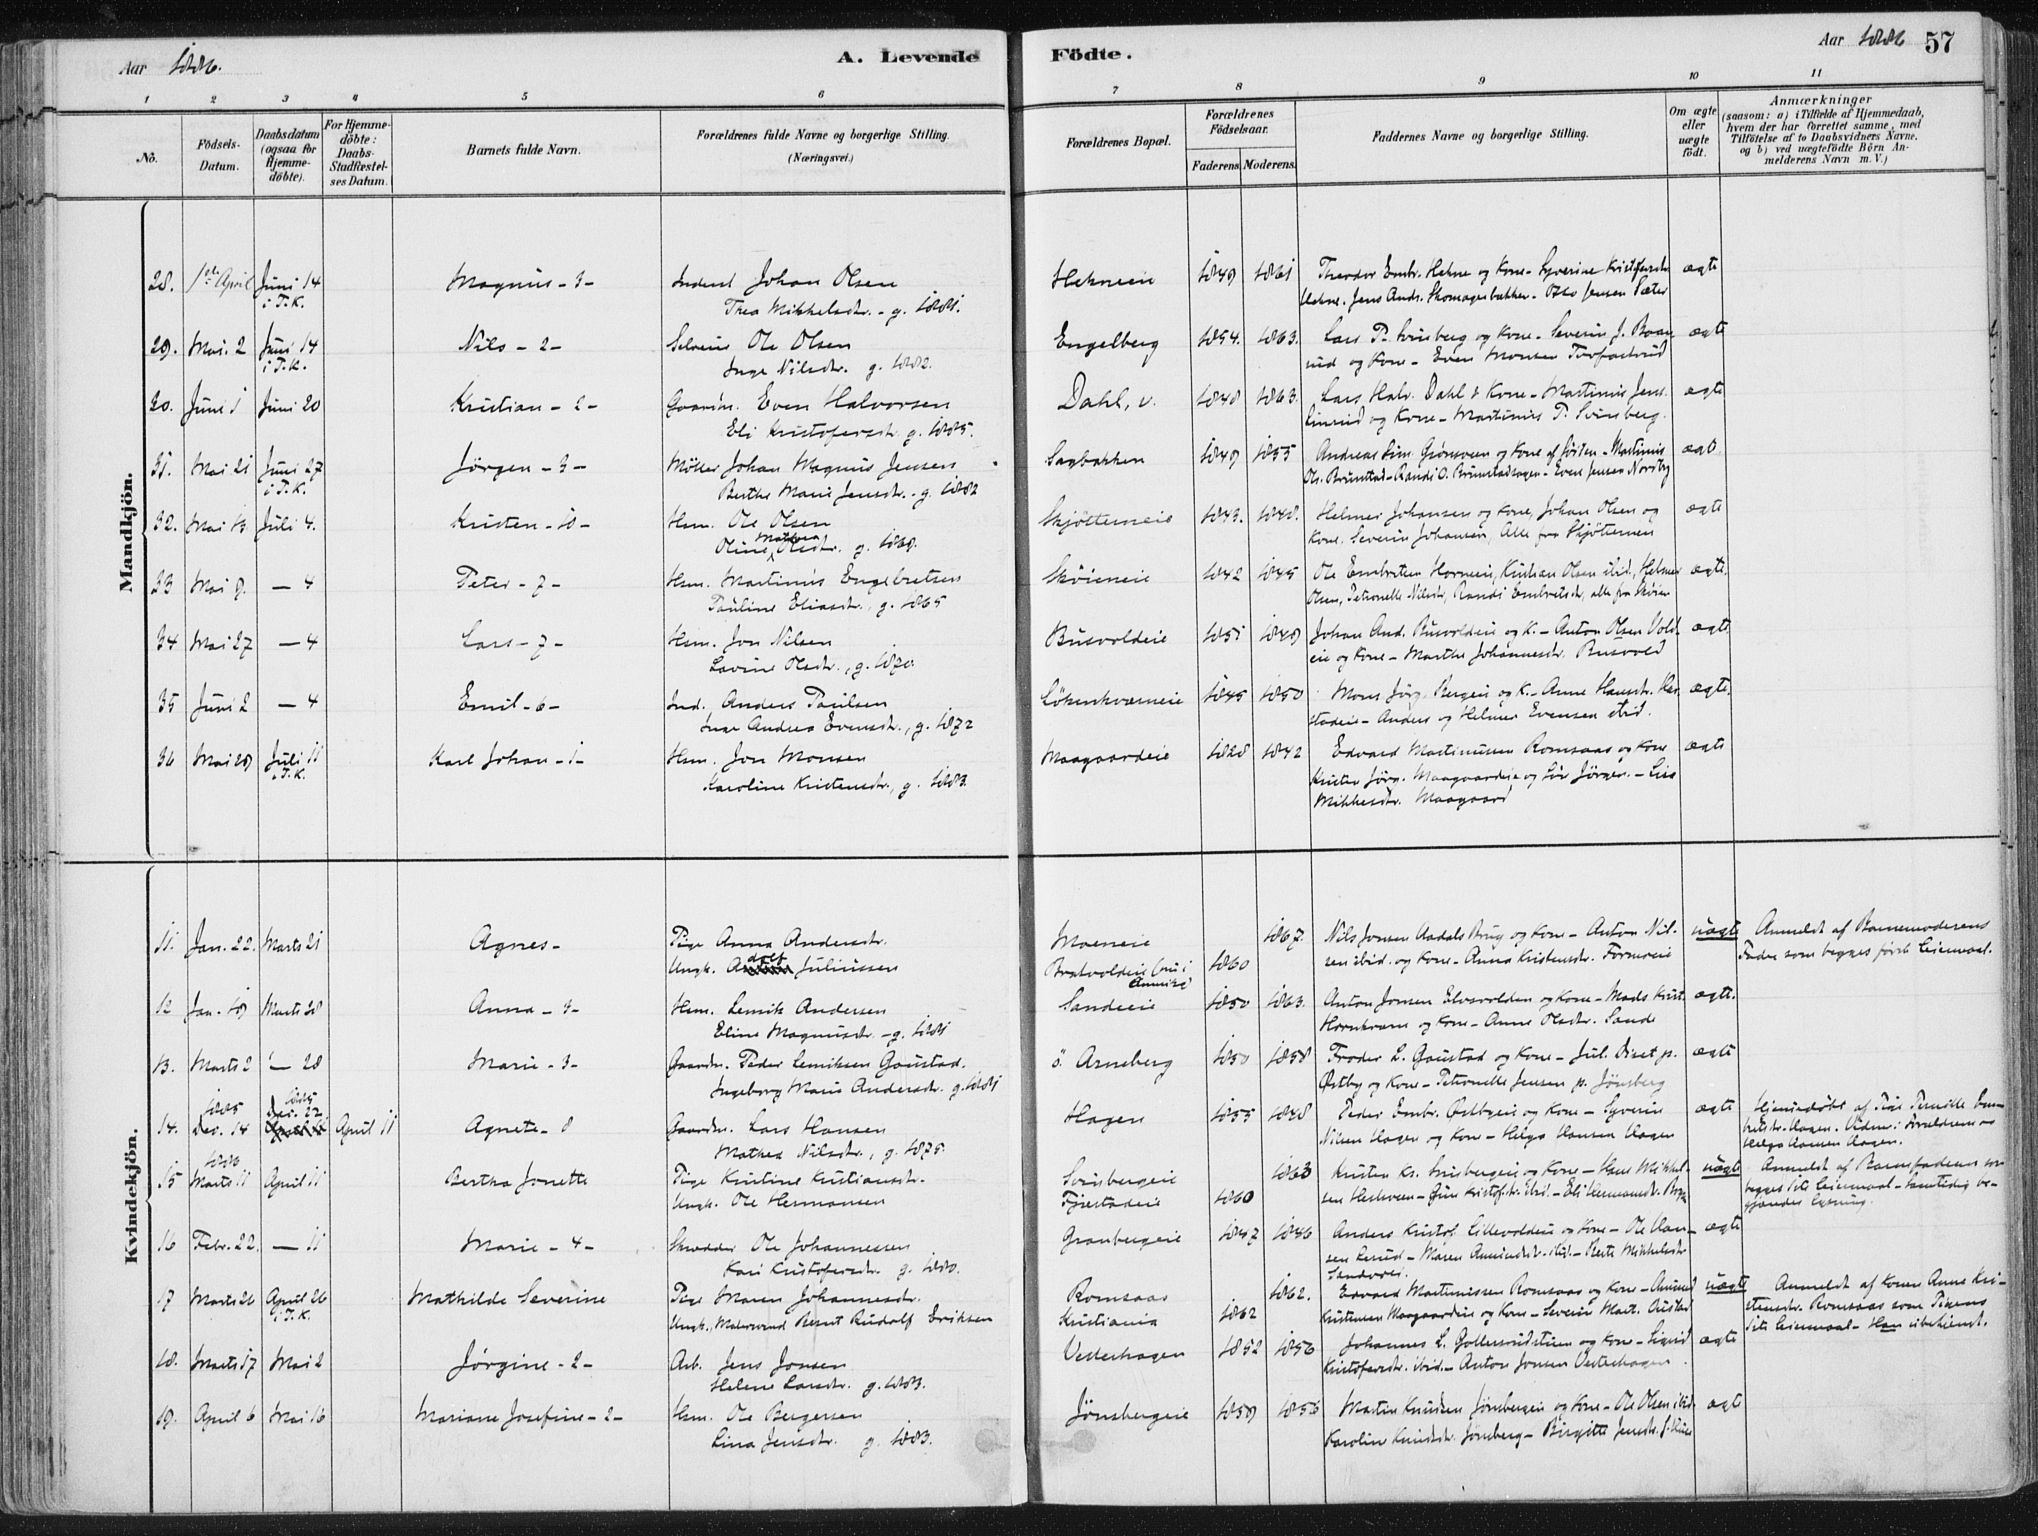 Aar 1886.
A. Levende Födte.
Aar 1886 57
1 2 3 4 5 6 7 8 9 10 11
No.
Födsels-Datum.
Daabsdatum (ogsaa for Hjemme-döbte).
For Hjemme-döbte: Daabs-Stadfæstel-ses Datum.
Barnets fulde Navn.
Forældrenes fulde Navne og borgerlige Stilling.
(Næringsvei.)
Forældrenes Bopæl.
Forældrenes Födselsaar.
Faderens. Moderens.
Faddernes Navne og borgerlige Stilling.
Om ægte eller uægte födt.
Anmærkninger
(saasom: a) i Tilfælde af Hjemmedaab, hvem der har forrettet samme, med Tilföielse af to Daabsvidners Navne, og b) ved uægtefödte Börn Anmelderens Navn m. V.)
Mandkjön.
28. 1 April Juni 14 Magnus - 3 - Inderst Johan Olsen Hekneeie 1849 1861 Theodor Embr. Hekne og Kone - Syverine Kristofersdr. ægte
i T.K. Thea Mikkelsdr. - g. 1881. Hekne. Jens Andr. Skomagerbakken - Otto Jensen Sæter
29. Mai 2 Juni 14 Nils - 2 - Selveier Ole Olsen Engelberg 1854. 1863. Lars P. Svinberg og Kone - Severin J. ægte
i T.K. Inge Nilsdr. g. 1882. og Kone - Even Monsen
30. Juni 1 Juni 20 Kristian - 2 - Gaardm. Even Halvorsen Dahl, v. 1848 1863. Lars Halv. Dahl & Kone - Martinus Jens. ægte
Eli Kristofersdr. g. 1885. og Kone - Martinus P. Svinberg.
31. Mai 21 Juni 27 Jörgen - 3 - Möller Johan Magnus Jensen Sagbakken 1849 1855 Andreas Sim. Grönsveen og Kone - Martinus ægte
i T.K. Berthe Marie Jensdr. - g. 1882 Ols. Brunstad - Randi O. - Even Jensen Norsby
32. Mai 13 Juli 4. Kristen - 10 - Hsm. Ole Olsen Skjötterneie 1843. 1848. Helmer Johansen og Kone, Johan Olsen og ægte
Oline Mathea Olsdr. g. 1868. Kone. Severin Johansen, Alle fra Skjötternen
33 Mai 9. — 4 Peter - 7 - Hsm. Martinus Engebretsen Sköieneie 1842 1845 Ole Embretsen Horneeie, Kristian Olsen ibid., Helmer ægte.
Pauline Eliasdr., g. 1865 Olsen, Petronelle Nilsdr, Randi Embretsdr, alle fra Sköien
34 Mai 27 — 4 Lars - 7 - Hsm. Jon Nilsen Busvoldeie 1851 1849 Johan And. Busvoldeie og K. - Anton Olsen Vold- ægte
Lovine Olsdr., g. 1870. eie og Kone - Marthe Johannesdr. Busvold
35 Juni 2 — 4 Emil - 6 - Ind. Anders Paulsen Lökenkværneie 1845 1850 Mons Jörg. Bergeie og K. - Anne Hansdr. Har- ægte
Inge Andrea Evensdr., g. 1872 stadeie - Anders og Helmer Evensen ibid.
36 Mai 29 Juli 11 Karl Johan - 1 - Hsm. Jon Monsen Maagaardeie 1828 1842 Edvard Martinussen Romsaas og Kone ægte
i T.K. Karoline Kristensdr., g. 1883. Kristen Jörg. Maagaardeie og Sön Jörgen - Lisa
Mikkelsdr. Maagaard
Kvindekjön.
11. Jan. 22. Marts 21 Agnes - Pige Anna Andersdr. Moeneie 1867. Nils Jonsen Aadals Brug og Kone - Anton Nil- uægte Anmeldt af Barnemoderens
Ungk. Adolf Juliussen Bratvoldeie (nu i Amerika) 1860 sen ibid. og Kone - Anna Kristensdr. Forneeie Fader som begges förste Leiermaal.
12 Jan. 19 Marts 28 Anna - 4 - Hsm. Lemik Andersen Sandeeie 1850 1863. Anton Jonsen Elvesvolden og Kone - Mads Krist. ægte.
Eline Magnusdr. - g. 1881 Hornkværn og Kone - Anne Olsdr. Sande
13. Marts 2 — 28 Marie - 3 - Gaardm. Peder Lemiksen Gaustad. ö. Arneberg 1850 1858 Frodes L. Gaustad og Kone - Jul. p. ægte
Ingeborg Marie Andersdr. g. 1881 Östby og Kone - Petronelle Jensen p. Jönsberg
14. 1885 Dec. 14 1885 Dec. 22 April 11 Agnete - 8 Gaardm. Lars Hansen Hagen 1855 1848 Peder Embr. Östbyeie og Kone - Syverin ægte Hjemmedöbt af Pige Pernille
Mathea Nilsdr., g. 1875. Nilsen Hagen og Kone - Helge Hansen Hagen Hagen. Vidner: Forældrene og Helge Hansen Hagen.
15 1886 Marts 11 April 11 Bertha Jonette Pige Kristine Kristiansdr. Svinbergeie 1863 Kristen Kr. Svinbergeie og Kone - Hans Mikkel- uægte Anmeldt af Barnefaderen som
Ungk. Ole Hermansen Fjæstadeie 1860 sen - Kristofdr. ibid. - Eli Hermansdr. begges 1ste Leiermaal - samtidig be-gjændes Lysning.
16 Febr. 22. — 11 Marie - 4 - Skrædder Ole Johannessen Granbergeie 1847 1846 Anders Kristof. Lillevoldeie og Kone - Ole Han- ægte
Kari Kristofersdr. g. 1880. sen - Maren Amundsdr. ibid. - Berte Mikkelsdr
17 Marts 26 April 26 Mathilde Severine Pige Maren Johannesdr. Romsaas 1862. Edvard Martinussen Romsaas og Kone - Amund uægte Anmeldt af Konen Anne Kri-
i T.K. Ungk., Malersvend Bernt Rudolf Eriksen Kristiania 1862 Kristensen Maagaardeie og Kone - Severin Mart. stensdr. Romsaas som Pigens 1ste Leiermaal - Han ubekjendt.
18. Marts 17 Mai 2 Jörgine - 2 - Arb. Jens Jonsen Vesterhagen 1852 1856 Johannes L. og Kone - Sigrid ægte
Helene Larsdr. g. 1883. Kristofersdr. ibid. - Anton Jonsen Vesterhagen
19. April 6 Mai 16 Mariane Josefine - 2 - Hsm. Ole Bergersen Jönsbergeie 1859 1856 Martin Knudsen Jönsbergeie og Kone - Ole Olsen ibid. ægte
Lina Jensdr. g. 1883. Karoline Knudsdr. Jönsberg - Birgitte Jensdr.